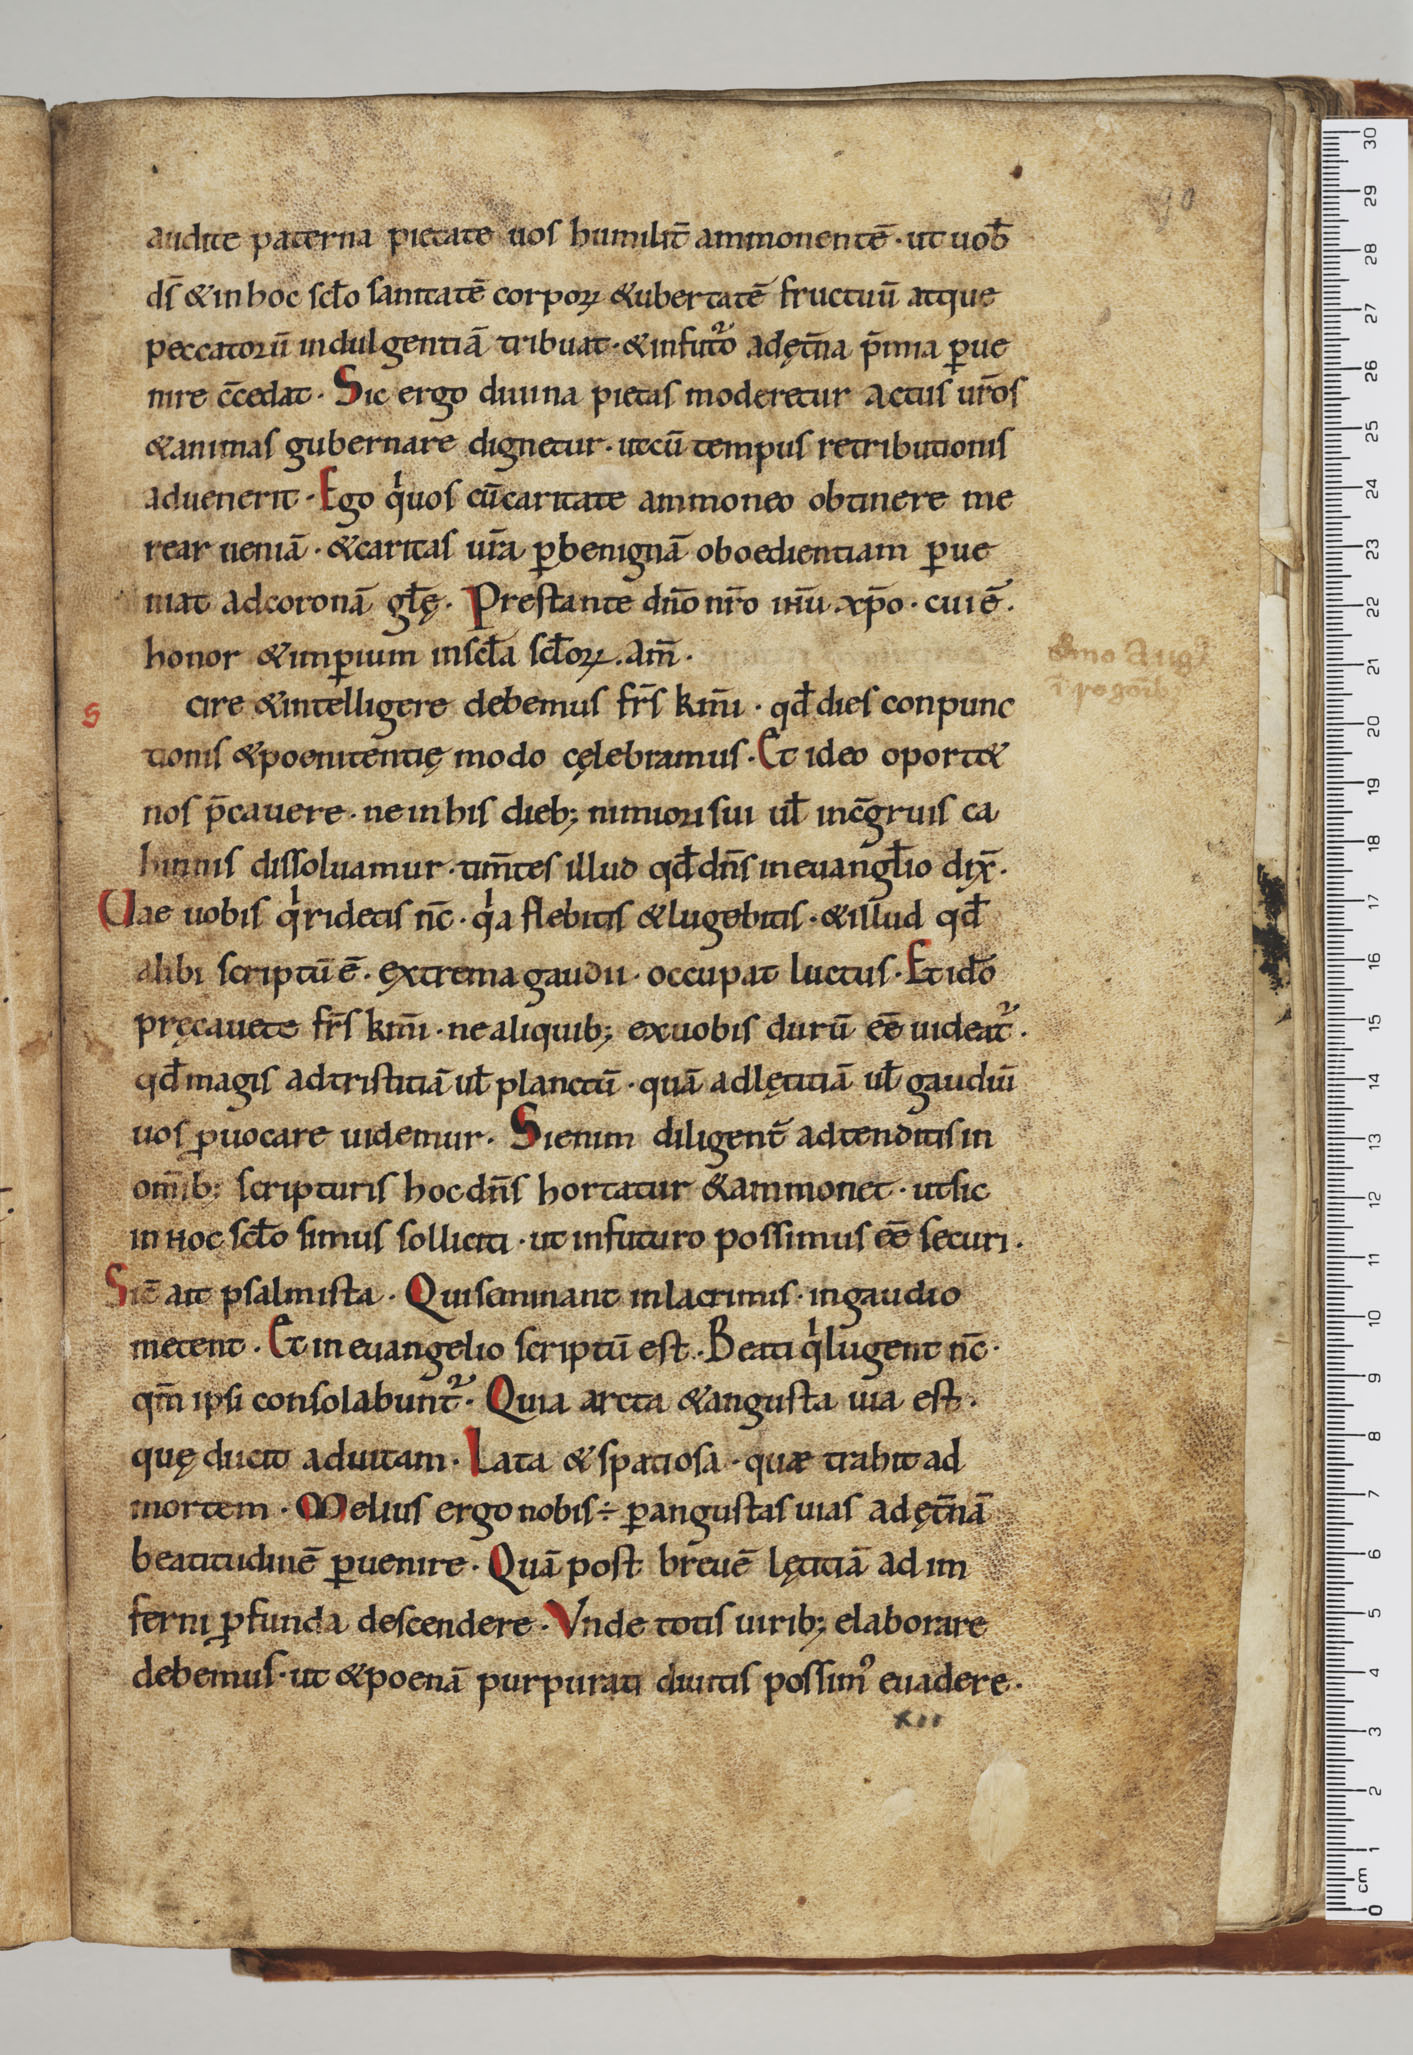 90
audite paterna pietate uos humilit̄ ammonentē · ut uob̄
dſ̄ & in hoc sc̄lo sanitatē corpoꝝ & ubertatē fructuū atque
peccatorū indulgentiā tribuat · & in futᷣo ad ęt̄na p̄mia ꝑue
nire c̄cedat · Sic ergo diuina pietas moderetur actus ur̄os
& animas gubernare dignetur · ut cū tempus retributionis
aduenerit · Ego qⁱ uos cū caritate ammoneo obtinere me
rear ueniā · & caritas ur̄a ꝑ benignā oboedientiam ꝑue
niat ad coronā gl̄ę · Prestante dn̄o nr̄o ihū xp̄o · cui ē ·
honor & imꝑium in sc̄la sc̄loꝝ . am̄ ·
S cire & intelligere debemus fr̄s km̄i · qđ dies conpunc
tionis & poenitentię modo cęlebramus · Et ideo oport&
nos p̄cauere · ne in his dieb; nimio risui ul̄ inc̄gruis ca
hinnis dissoluamur · tim̄tes illud qđ dn̄s in euangl̄io dix̄ ·
Uae uobis qⁱ ridetis nc̄ · qⁱa flebitis & lugebitis · & illud qđ
alibi scriptū ē · extrema gaudii · occupat luctus · Et id̄o
pręcauete fr̄s km̄i · ne aliquib; ex uobis durū ēē uideat᷑ ·
qđ magis ad tristitiā ul̄ planctū · quā ad lętitiā ul̄ gaudiū
uos ꝓuocare uidemur · Si enim diligent̄ adtenditis in
om̄ib: scripturis hoc dn̄s hortatur & ammonet · ut sic
in hoc sc̄lo simus solliciti · ut in futuro possimus ēē securi ·
Sic̄ ait psalmista · Qui seminant in lacrimis · in gaudio
metent · Et in euangelio scriptū est · Beati qⁱ lugent nc̄ ·
qm̄ ipsi consolabunt᷑ · Quia arcta & angusta uia est ·
quę ducit ad uitam · Lata & spatiosa · quæ trahit ad
mortem · Melius ergo nobis ÷ ꝑ angustas uias ad ęt̄nā
beatitudinē ꝑuenire · Quā post breuē lętitiā ad in
ferni ꝓfunda descendere · Vnde totis uirib; elaborare
debemus · ut & poenā purpurati diuitis possimꝰ euadere ·
xii